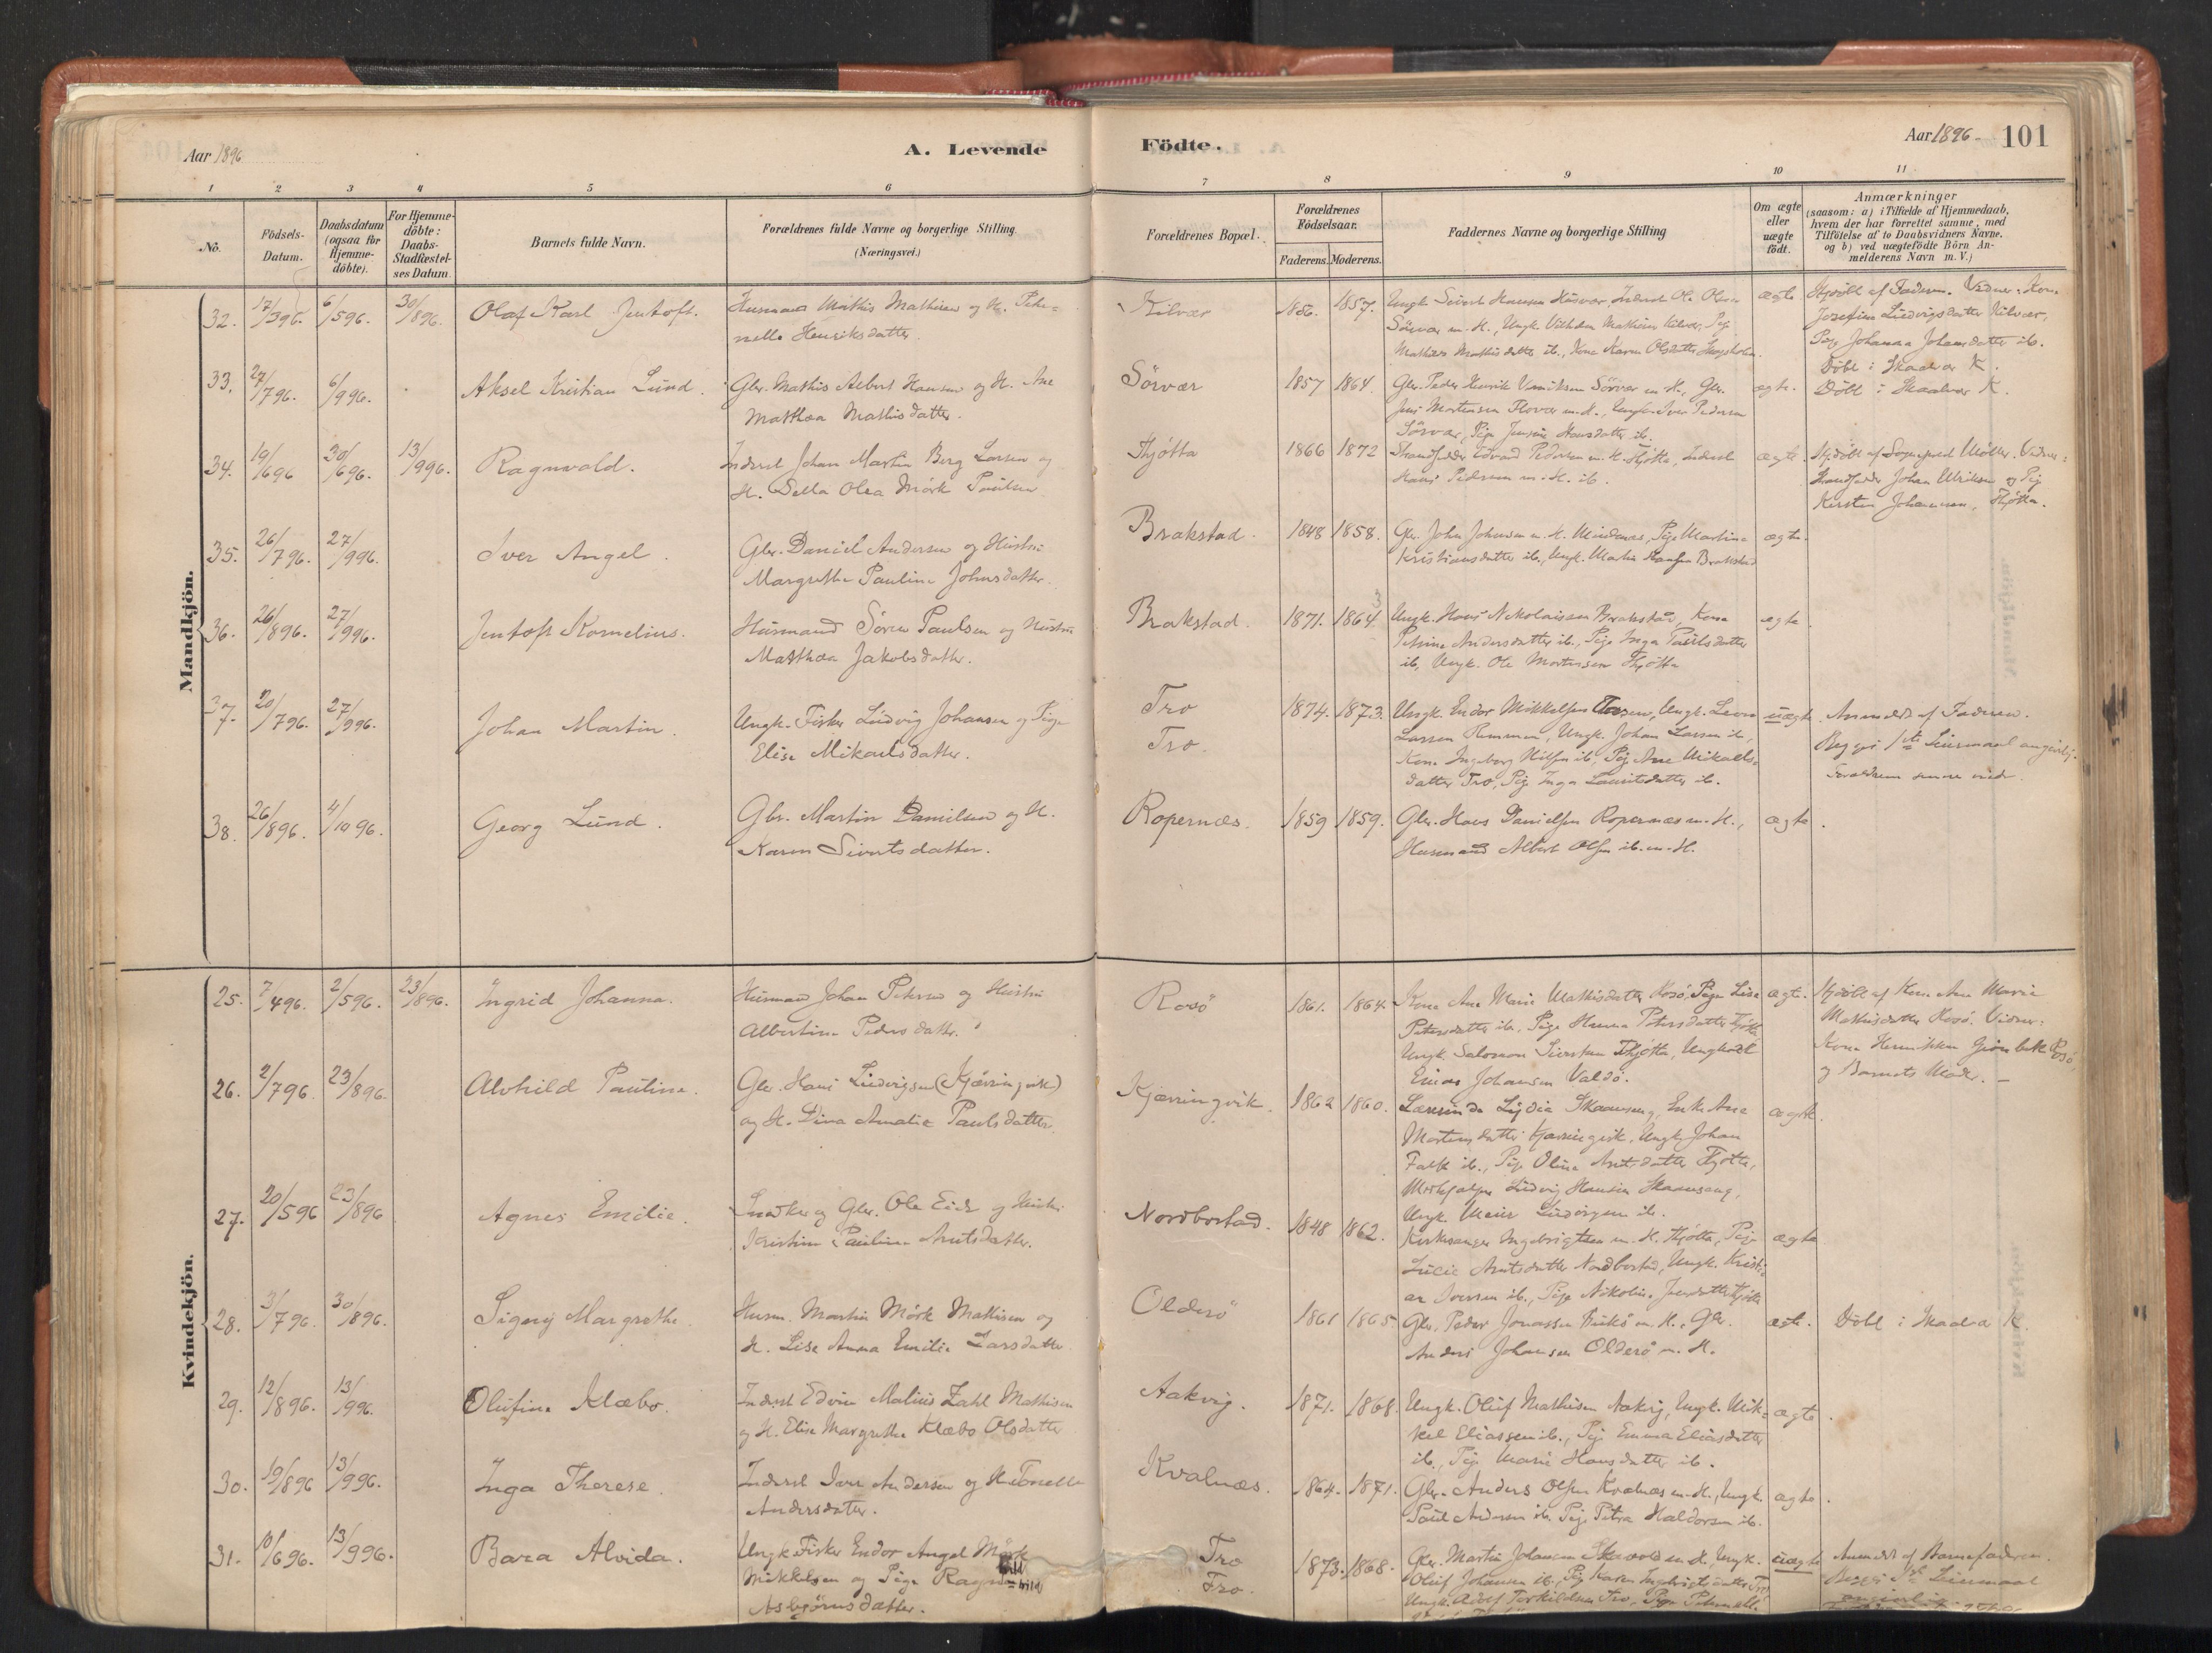 Aar 1896
A. Levende
Födte.
Aar 1896 - 101
1 2 3 4 5 6 7 8 9 10 11
No.
Födsels-
Datum.
Daabsdatum
(ogsaa for
Hjemme-
döbte).
For Hjemme-
döbte:
Daabs-
Stadfæstel-
ses Datum.
Barnets fulde Navn.
Forældrenes fulde Navne og borgerlige Stilling.
(Næringsvei.)
Forældrenes Bopæl.
Forældrenes
Födselsaar.
Faderens. Moderens.
Faddernes Navne og borgerlige Stilling
Om ægte
eller
uægte
födt.
Anmærkninger
(saasom: a) i Tilfælde af Hjemmedaab,
hvem der har forrettet samme, med
Tilföielse af to Daabsvidners Navne.
og b) ved uægtefödte Börn An-
melderens Navn m. V.)
Mandkjön.
32. 17/396. 6/596. 30/896. Olaf Karl Jentoft.
Husmand Mathis Mathisen og H. Peter-
nelle Henriksdatter.
Kilvær 1856. 1857.
Ungk. Sivert Hansen Husvær, Inderst Ole Olsen
Sörvær m. H., Ungk. Vilhelm Mathisen Kilvær, Pige
Mathilde Mathisdatter ib., Kone Karen Olsdatter
ægte
Hjdöbt af Faderen. Vidner: Kone
Josefine Ludvigsdatter Kilvær,
Pige Johanna Johansdatter ib.
Döbt i Skaalvær K.
33. 27/796. 6/996. Aksel Kristian Lund.
Gbr. Mathis Albert Hansen og H. Ane
Mathea Mathisdatter.
Sörvær 1857 1864.
Gbr. Peder Henrik Sörvær m. H., Gbr.
Jens Mortensen Flovær m. H., Iver Pedersen
Sörvær, Pige Jensine Hansdatter ib.
ægte.
Döbt i Skaalvær K.
34. 19/696 30/696. 13/996. Ragnvald.
Inderst Johan Martin Berg Larsen og
H. Sella Olea Mörk Paulsen
Thjötta 1866 1872
Strandsidder Edvard Pedersen m. H. Thjötta, Inderst
Hans Pedersen m. H. ib.
ægte.
Hjdöbt af Sognepræst Möller. Vidner:
Strandsidder Johan Ulriksen og Pige
Kirsten Johannesen, Thjötta.
35. 26/796. 27/996. Iver Angel.
Gbr. Daniel Andersen og Hustru
Margrethe Pauline Johnsdatter.
Brakstad. 1848 1858.
Gbr. John Johnsen m. H. Mindnæs, Pige Martine
Kristiansdatter ib., Ungk. Martin Brakstad
ægte.
36. 26/896. 27/996. Jentoft Kornelius.
Husmand Sören Paulsen og Hustru
Mathea Jakobsdatter.
Brakstad. 1871. 1864. 3
Ungk. Hans Nikolaisen Brakstad, Kone
Petrine Andersdatter ib., Pige Inga Paulsdatter
ib, Ungk. Ole Mortensen Thjötta
ægte.
37. 20/796. 27/996. Johan Martin.
Ungk. Fisker Ludvig Johansen og Pige
Elise Mikaelsdatter.
Tro
Tro.
1874. 1873.
Ungk. Endor Mikkelsen, Ungk. Leon
Larsen Remmen, Ungk. Johan Larsen ib,
Kone Ingeborg Nilsen ib, Pige Ane Mikaels-
datter Tro, Pige Inga Lauritsdatter ib.
uægte
Anmeldt af Faderen.
Begges 1ste Leiermaal angivelig.
38. 26/896. 4/1096. Georg Lund.
Gbr. Martin Danielsen og H.
Karen Sivertsdatter.
Ropernæs. 1859 1859.
Gbr. Hans Danielsen Ropernæs m. H.,
Husmand Albert Olsen ib. m. H.
ægte.
Kvindekjön.
25. 7/496. 2/596. 23/896. Ingrid Johanna.
Husmand Johan Petersen og Hustru
Albertine Pedersdatter.
Rosö 1861. 1864.
Kone Ane Marie Mathisdatter Rosö, Pige Lise
Petersdatter ib., Pige Hanna Petersdatter Thjötta
Ungk. Salomon Sivertsen Thjötta, Ungkarl
Einar Johansen Valdö.
ægte.
Hjdöbt af Kone Ane Marie
Mathisdatter Rosö. Vidner:
Kone Henrikke Grönbek Rosö,
og Barnets Moder. -
26. 2/796. 23/896. Alvhild Pauline.
Gbr. Hans Ludvigsen (Kjærringvik)
og H. Dina Amalie Paulsdatter.
Kjærringvik. 1862 1860.
Lærerinde Lydia Skaanseng, Enke Ane
Mortensdatter Kjærringvik, Ungk Johan
Falk ib., Pige Olina Arntsdatter Thjötta,
Ludvig Hansen Skaanseng,
Ungk. Meier Ludvigsen ib.
ægte.
27. 20/596 23/896 Agnes Emilie.
Snedker og Gbr. Ole Eide og Hustru
Kristine Pauline Arntsdatter.
Nordbostad. 1848 1862.
Kirkesanger Ingebrigtsen m. H. Thjötta, Pige
Lucie Arntsdatter Nordbostad, Ungk. Kristi-
an Iversen ib., Pige Nikoline Thjötta
ægte
28. 3/796. 30/896. Signy Margrethe.
Husm. Martin Mörk Mathisen og
H. Lise Anna Emilie Larsdatter
Olderö 1861 1865.
Gbr. Peder Jonassen m. H., Gbr.
Anders Johansen Olderö m. H.
ægte.
Döbt i Skaalvær K.
29. 12/896. 13/996. Olufine Klæbo.
Inderst Edvin Malius Zahl Mathisen
og H. Elise Margrethe Klæbo Olsdatter
Aakvig. 1871. 1868.
Ungk. Oluf Mathisen Aakvig, Ungk. Mik-
kel Eliassen ib., Pige Emma Eliasdatter
ib., Pige Marie Hansdatter ib.
ægte.
30. 19/896 13/996. Inga Therese.
Inderst Iver Andersen og H.
Andersdatter.
Kvalnæs. 1864. 1871.
Gbr. Anders Olsen Kvalnæs m. H., Ungk.
Paul Andersen ib. Pige Petra Haldorsen ib.
ægte.
31. 10/696. 13/996. Bara Alvida.
Ungk. Fisker Endor Angel Mörk
Mikkelsen og Pige
Asbjörnsdatter.
Tro
Tro.
1873. 1868.
Gbr. Martin Johansen Skavold m. H., Ungk.
Oluf Johansen ib. Pige Karen Ingebrigtsdatter Tro
Ungk. Adolf Torkildsen Tro, Pige
uægte
Anmeldt af Barnefaderen.
Begges 1ste Leiermaal